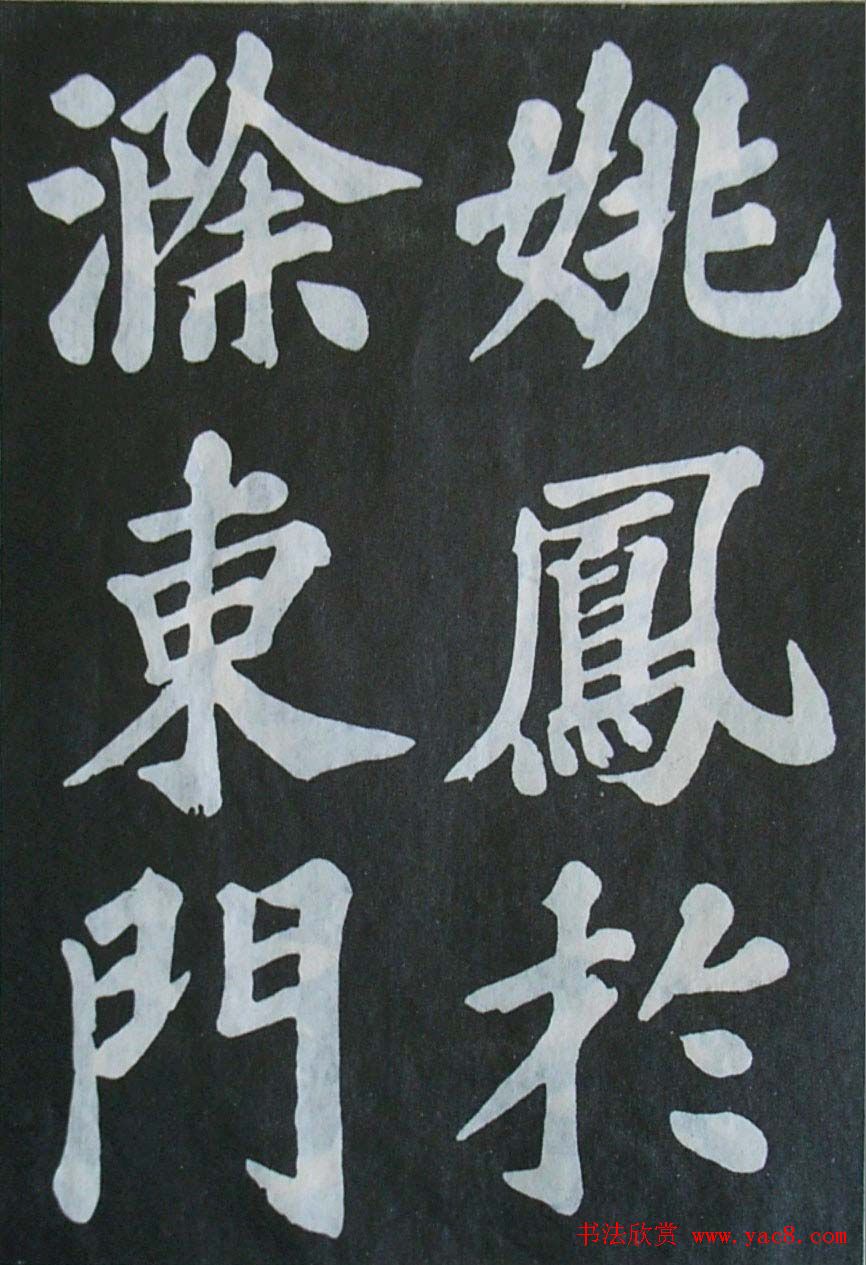 姚鳳於
滁東門
书法欣赏 www.yac8.com